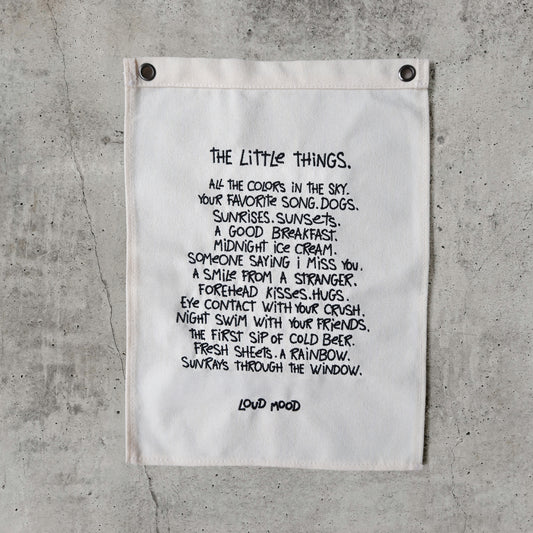 THE LITTLE THINGS.
ALL THE COLORS IN THE SKY.
YOUR FAVORITE SONG.DOGS.
SUNRISES.SUNSETS.
A GOOD BREAKFAST.
MIDNIGHT ICE CREAM.
SOMEONE SAYING I MISS YOU.
A SMILE FROM A STRANGER.
FOREHEAD KISSES.HUGS.
EYE CONTACT WITH YOUR CRUSH.
NIGHT SWIM WITH YOUR FRIENDS.
THE FIRST SIP OF COLD BEER.
FRESH SHEETS.A RAINBOW.
SUNRAYS THROUGH THE WINDOW.
LOUD MOOD